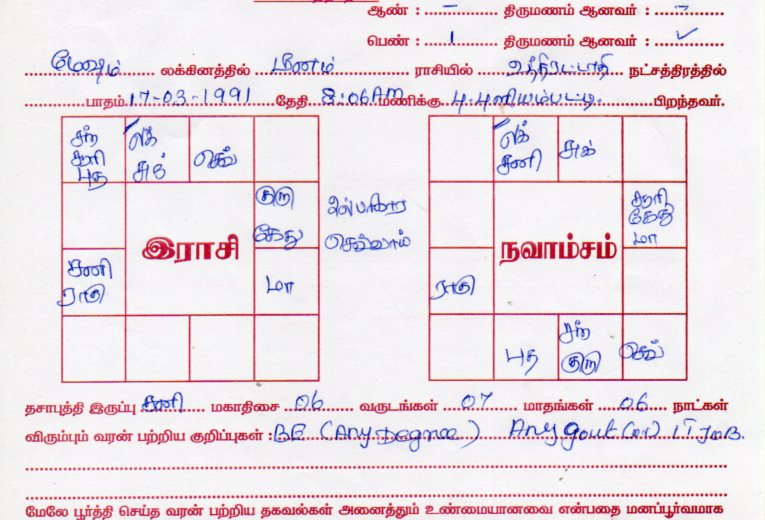 ஆண் : – திருமணம் ஆனவர் : –
பெண் : 1 திருமணம் ஆனவர் : ✓
மேஷம் லக்கினத்தில் மீனம் ராசியில் உத்திரட்டாதி நட்சத்திரத்தில்
பாதம் 17-03-1991 தேதி 8:06AM மணிக்கு பு.புளியம்பட்டி. பிறந்தவர்.
சந் லக் செவ்
சூரி சுக்
புத
குரு
கேது
இராசி
சனி
ராகு
மா
செவ்வாய்
லக் சுக்
சனி
சூரி
கேது
மா
நவாம்சம்
ராகு
புத சந் செவ்
குரு
தசாபுத்தி இருப்பு சனி மகாதிசை 06 வருடங்கள் 07 மாதங்கள் 06 நாட்கள்
விரும்பும் வரன் பற்றிய குறிப்புகள் : BE (Any Degree) Any Govt (or) IT Job.
மேலே பூர்த்தி செய்த வரன் பற்றிய தகவல்கள் அனைத்தும் உண்மையானவை என்பதை மனப்பூர்வமாக